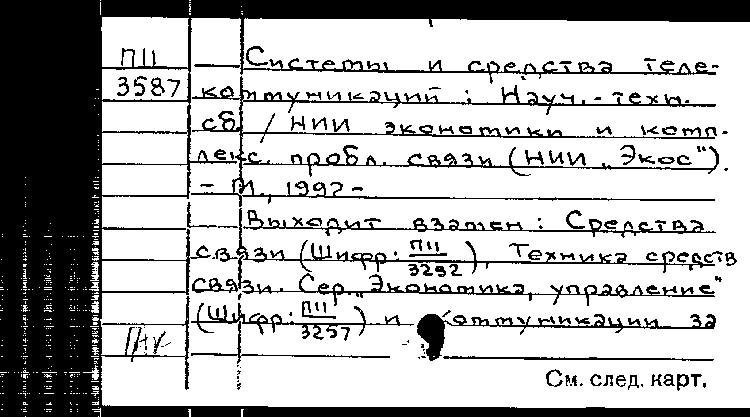 П11
3587
Системы и средства теле-
коммуникаций : Науч.-техн.
сб. / НИИ экономики и комп-
лекс. пробл. связи (НИИ „Экос").
- М., 1992-
Выходит взамен : Средства
связи (Шифр: П11/3292), Техника средств
связи. Сер. „Экономика, управление"
(Шифр: П11/3257) и Коммуникации за
См. след. карт.